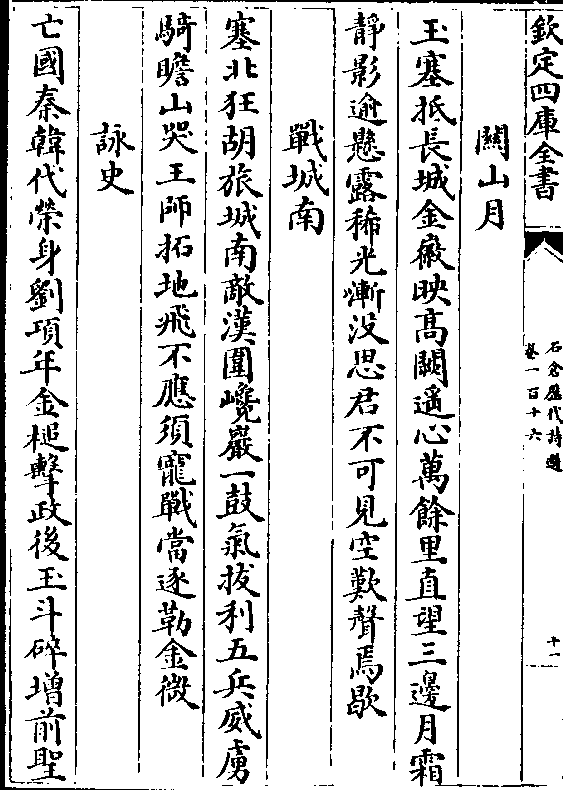 欽定四庫全書
石倉歷代詩選
卷一百十六
十一
關山月
玉塞抵長城金徽映高闕遥心萬餘里直望三邊月霜
靜影逾懸露稀光漸没思君不可見空歎聲焉歇
戰城南
塞北狂胡旅城南敵漢圍巉巖一鼓氣拔利五兵威虜
騎瞻山哭王師拓地飛不應須寵戰當逐勒金微
詠史
亡國秦韓代榮身劉項年金槌擊政後玉斗碎增前聖